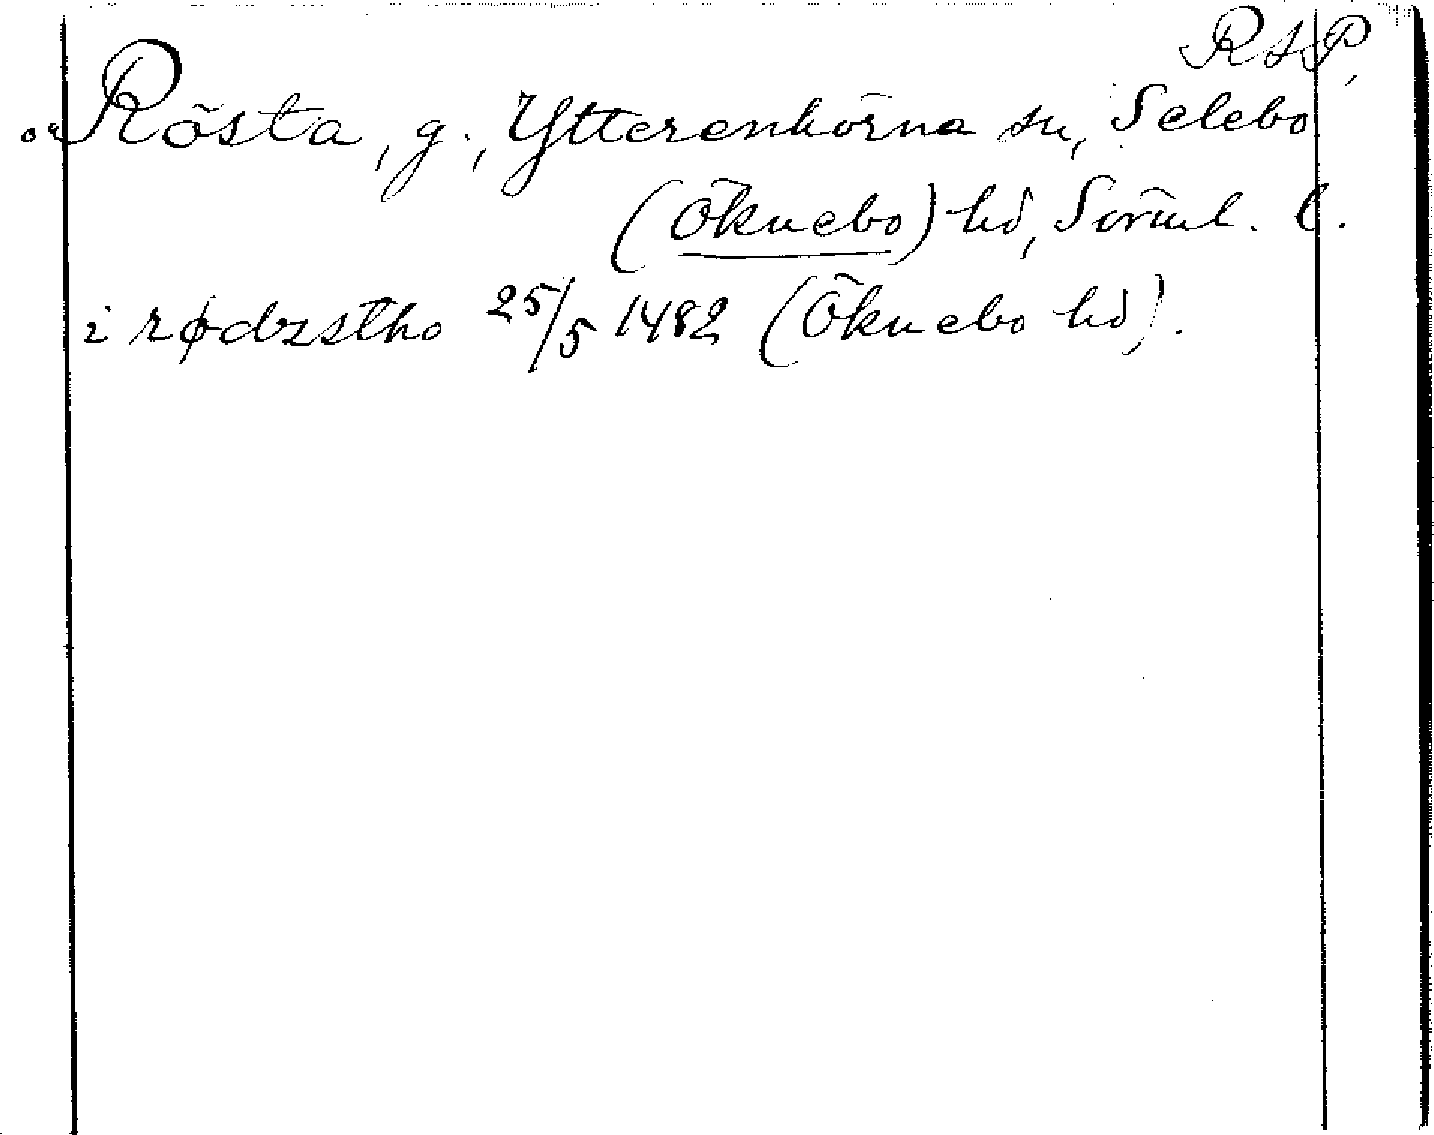 RAP,
Rösta, g., Ytterenhörna sn, Selebo
(Öknebo) hd, Sörml. l.
i rødzstho 25/5 1482 (Öknebo hd).